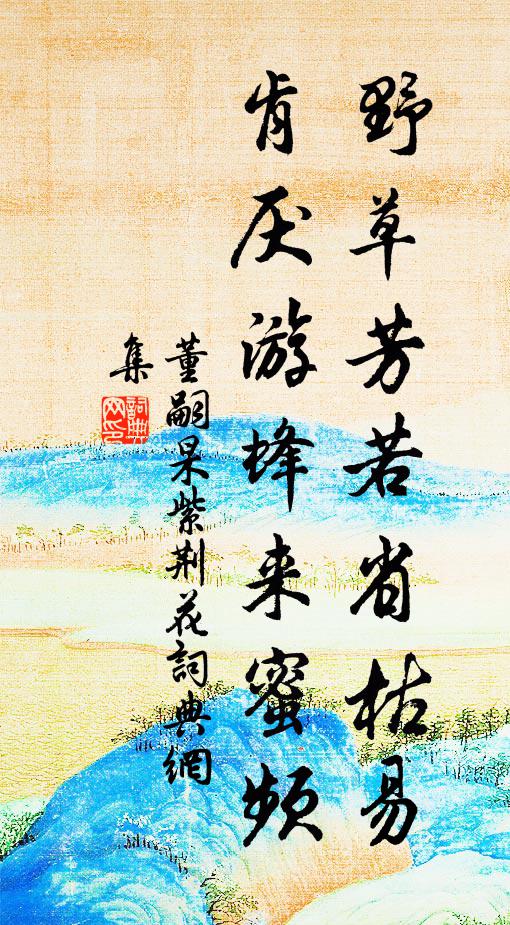 野草芳若省枯易
肯厌游蜂来蜜频
董嗣杲紫荆花詞典網
集
詞典網印